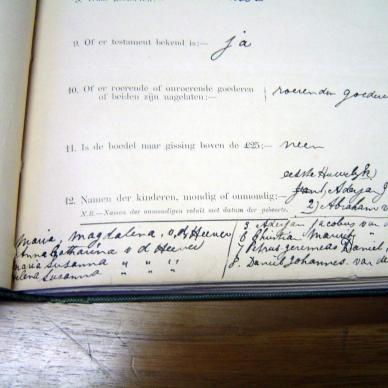 9. Of er testament bekend is:— ja
10. Of er roerende of onroerende goederen
of beiden zijn nagelaten:— roerende goederen
11. Is de boedel naar gissing boven de £25:— neen
eerste Huwelijk
12. Namen der kinderen, mondig of onmondig:— Adrejan J
N.B.—Namen der onmondigen voluit met datum der geboorte. 2) Abraham v
Maria, Magdalena v. d Heever
Anna Catharina v d Heever
Maria Susanna " " "
Helena Susanna " " "
Adrejan Jacobus van d
6 Christia Maurits
7 Petrus jeremeas Daniel
8. Daniel Johannes. van de